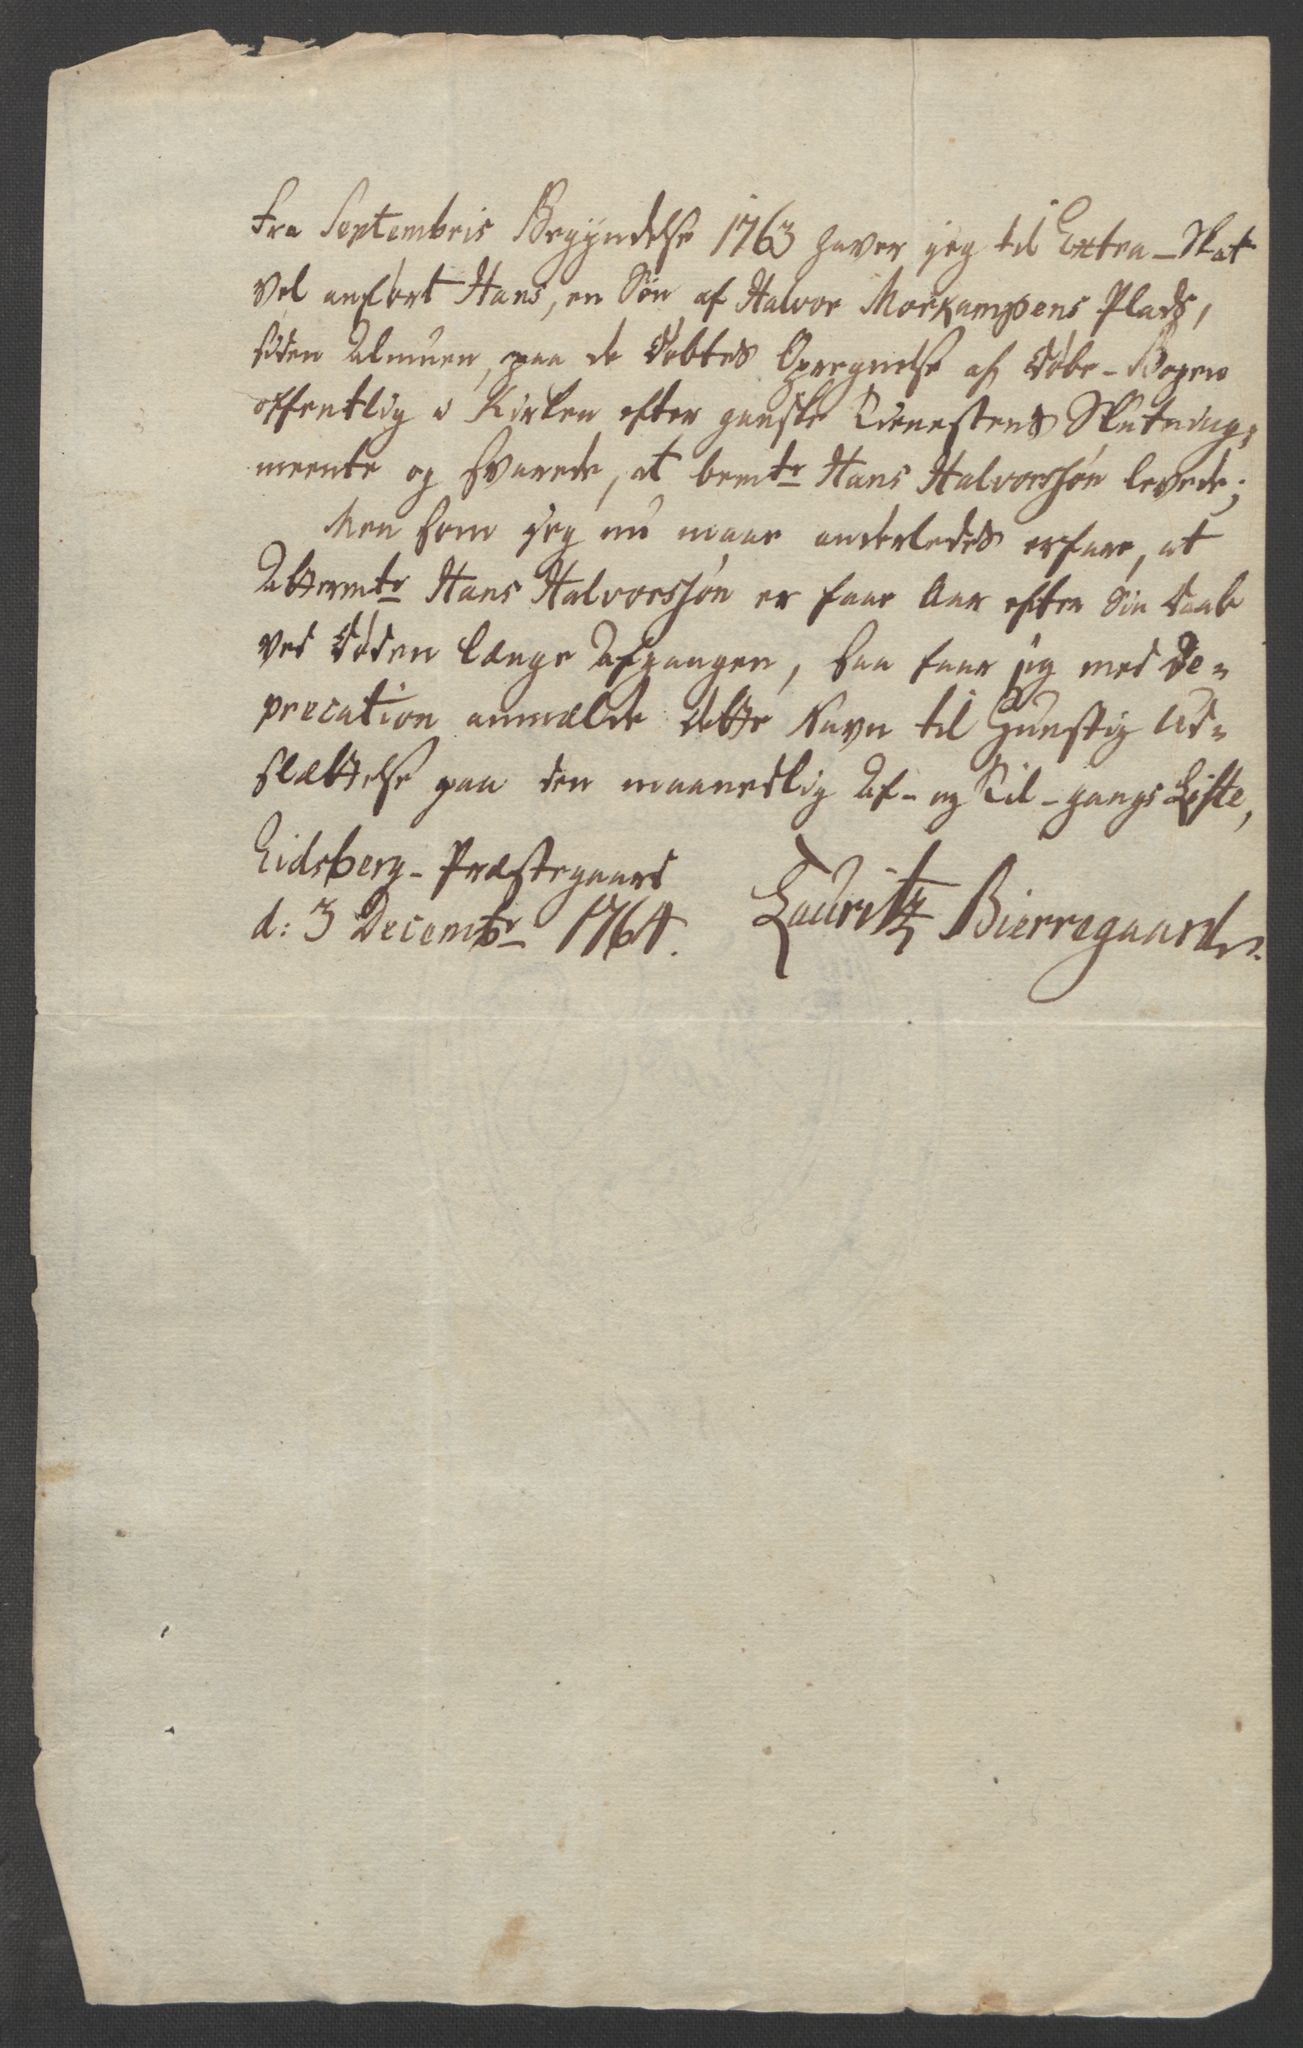 Fra Septembris Begyndelse 1763 haver jeg til Extra-Skat
vel anført Hans, en Søn af Halvor Morkampens Plads,
siden Almuen, paa de Døbtes Opregnelse af Døbe-Bogen
offentlig i Kirken efter ganske Tienestens Slutning,
meente og svarede, at bemte Hans Halvorsøn levede;
Men som jeg nu maae anderledes erfare, at
Attermte Hans Halvorsøn er faae Aar efter Sin Daab
ved Døden længe Afgaangen, saa faar jeg med De-
precation anmælde dette Navn til Gunstig Ud-
slættelse paa den maanedlig Af- og Til-gangs Liste,
Eidsberg-Præstegaard
d: 3 Decembr 1764. Lauritz Bierregaard